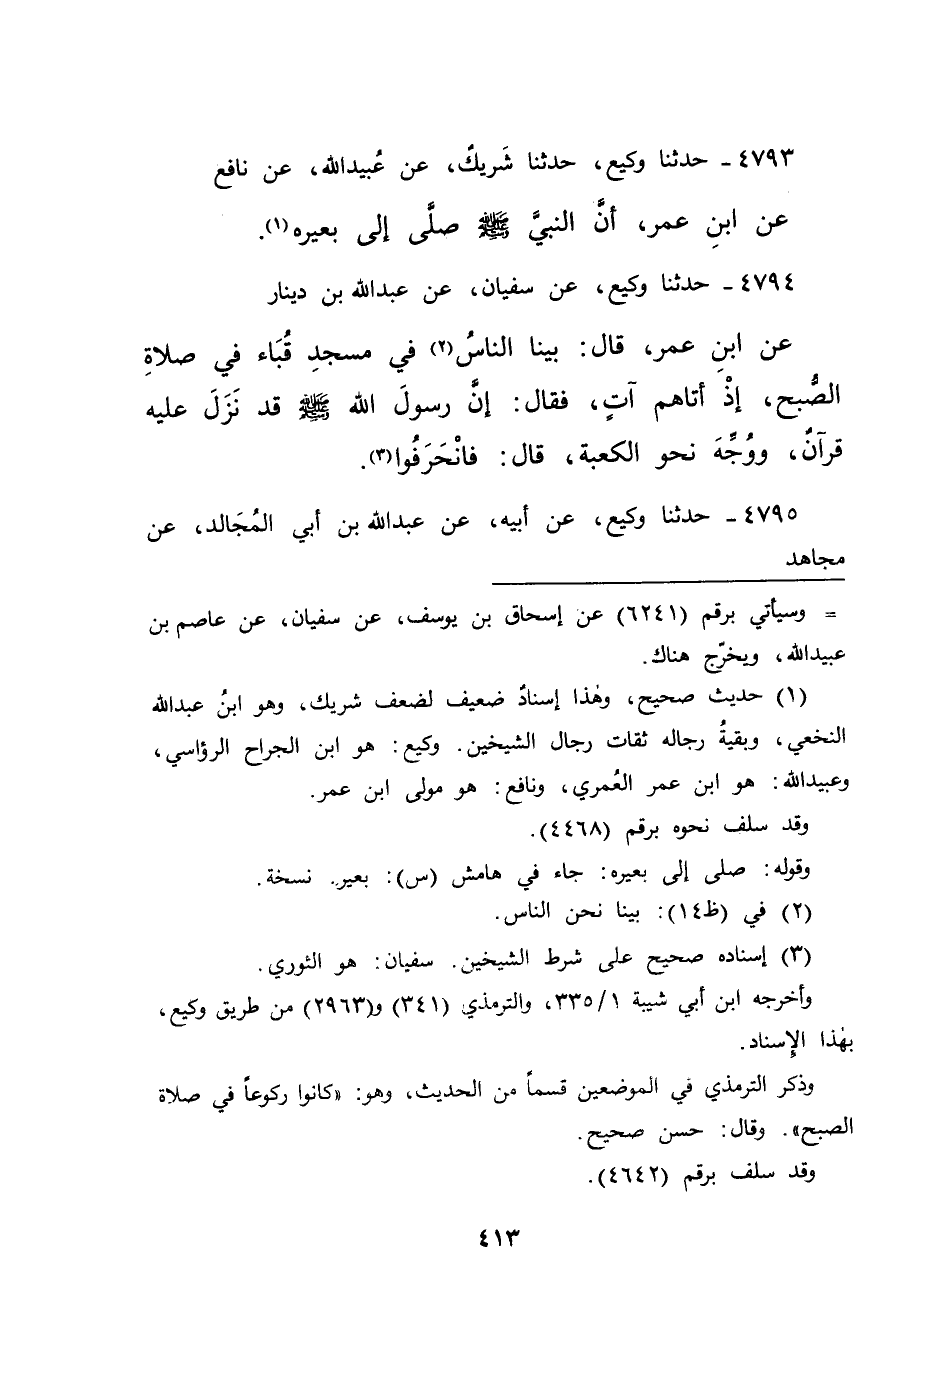 ٤٧٩٣ ـ حدثنا وكيع، حدثنا شَريكٌ، عن عُبيدالله، عن نافع
عن ابنِ عمر، أنَّ النبيَّ ﷺ صلَّى إلى بعيره(١).
٤٧٩٤ ـ حدثنا وكيع، عن سفيان، عن عبدالله بن دينار
عن ابنِ عمر، قال: بينا الناسُ(٢) في مسجدِ قُبَاء في صلاةِ
الصُّبح، إذْ أتاهم آتٍ، فقال: إنَّ رسولَ الله ﷺ قد نَزَلَ عليه
قرآنٌ، ووُجِّهَ نحو الكعبة، قال: فانْحَرَفُوا(٣).
٤٧٩٥ ـ حدثنا وكيع، عن أبيه، عن عبدالله بن أبي المُجَالد، عن
مجاهد
= وسيأتي برقم (٦٢٤١) عن إسحاق بن يوسف، عن سفيان، عن عاصم بن
عبيدالله، ويخرّج هناك.
(١) حديث صحيح، وهٰذا إسنادٌ ضعيف لضعف شريك، وهو ابنُ عبدالله
النخعي، وبقيةُ رجاله ثقات رجال الشيخين. وكيع: هو ابن الجراح الرؤاسي،
وعبيدالله: هو ابن عمر العُمري، ونافع: هو مولى ابن عمر.
وقد سلف نحوه برقم (٤٤٦٨).
وقوله: صلى إلى بعيره: جاء في هامش (س): بعير. نسخة.
(٢) في (ظ١٤): بينا نحن الناس.
(٣) إسناده صحيح على شرط الشيخين. سفيان: هو الثوري.
وأخرجه ابن أبي شيبة ٣٣٥/١، والترمذي (٣٤١) و(٢٩٦٣) من طريق وكيع،
بهٰذا الإِسناد.
وذكر الترمذي في الموضعين قسماً من الحديث، وهو: «كانوا ركوعاً في صلاة
الصبح». وقال: حسن صحيح.
وقد سلف برقم (٤٦٤٢).
٤١٣